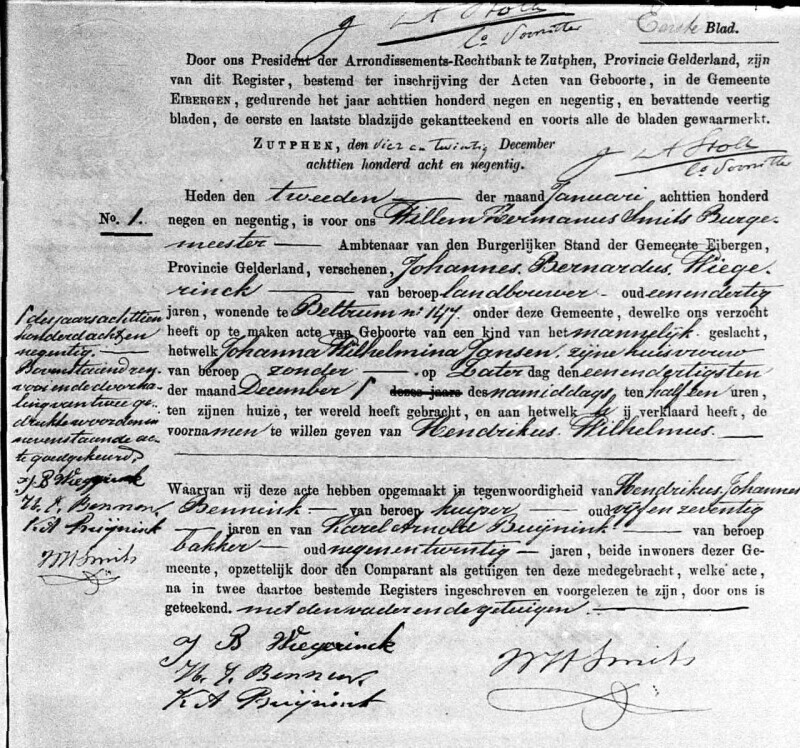 A Stoll
Eerste Blad.
Door ons President der Arrondissements-Rechtbank te Zutphen, Provincie Gelderland, zijn
van dit Register, bestemd ter inschrijving der Acten van Geboorte, in de Gemeente
EIBERGEN, gedurende het jaar achttien honderd negen en negentig, en bevattende veertig
bladen, de eerste en laatste bladzijde gekantteekend en voorts alle de bladen gewaarmerkt.
ZUTPHEN, den vier en twintig December
achttien honderd acht en negentig.
A Stoll
No. 1.
Heden den tweeden der maand Januari achttien honderd
negen en negentig, is voor ons Willem Hermanus Smits Burge-
meester Ambtenaar van den Burgerlijken Stand der Gemeente Eibergen,
Provincie Gelderland, verschenen, Johannes Bernardus Wiege-
rinck van beroep landbouwer oud eenendertig
jaren, wonende te Beltrum no 147 onder deze Gemeente, dewelke ons verzocht
heeft op te maken acte van Geboorte van een kind van het mannelijk geslacht,
hetwelk Johanna Wilhelmina Jansen, zijne huisvrouw
van beroep zonder op Zaterdag den eenendertigsten
der maand December deses jaars des namiddags ten half een uren,
ten zijnen huize, ter wereld heeft gebracht, en aan hetwelk hij verklaard heeft, de
voornamen te willen geven van Hendrikus Wilhelmus.
des jaars achttien
honderd acht en
negentig.
Bovenstaand ren-
vooi en de doorha-
ling van twee ge-
drukte woorden in
nevenstaande ac-
te goedgekeurd.
J B Wiegerinck
H. J. Bennink
K A Buijnink
WHSmits
Waarvan wij deze acte hebben opgemaakt in tegenwoordigheid van Hendrikus Johannes
Bennink van beroep kuiper oud vijfenzeventig
jaren en van Karel Arnold Buijnink van beroep
bakker oud negenentwintig jaren, beide inwoners dezer Ge-
meente, opzettelijk door den Comparant als getuigen ten deze medegebracht, welke acte,
na in twee daartoe bestemde Registers ingeschreven en voorgelezen te zijn, door ons is
geteekend. met den vader en de getuigen.
J B Wiegerinck
H. J. Bennink
K A Buijnink
WHSmits